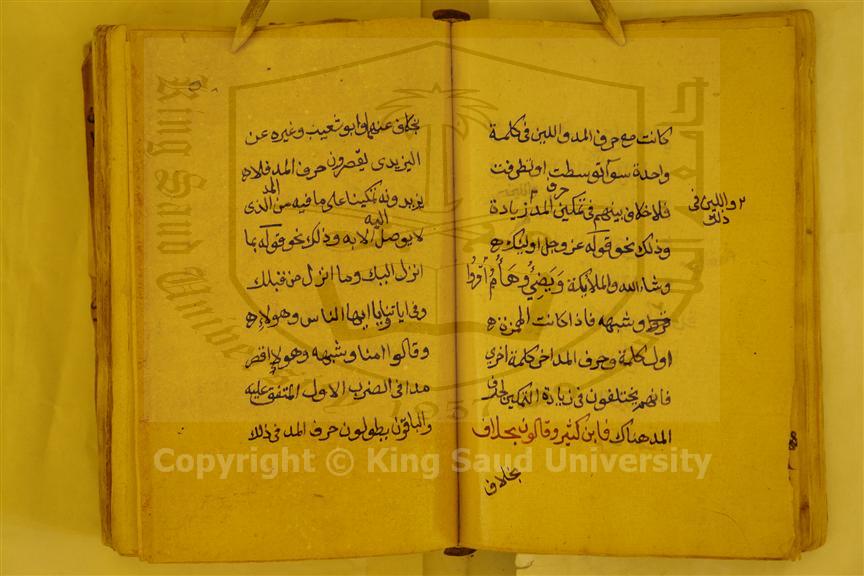 كانت مع حرف المد واللين فى كلمة
واحدة سوآ توسطت او تطرفت
فلا خلاف بينهم فى تمكين حرف المد زيادة
٢ واللين فى
ذلك
وذلك نحو قوله عز وجل اوليك
وشاء الله والملائكة وَيُضِئُ وهَاُمُ اقْرَؤُا
وشبهه فاذا كانت الهمزة
اول كلمة وحرف المد اخر كلمة اخرى
فانهم يختلفون فى زيادة التمكين لحرف
المد هناك فابن كثير وقالون بخلاف
بخلاف
بخلاف عنهما وابو شعيب وغيره عن
اليزيدى يقصرون حرف المد فلا
يزيدونه تمكينا على ما فيه من المد الذى
لا يوصل اليه الا به وذلك نحو قوله بما
انزل اليك وما انزل من قبلك
وفى اياتنا ويا ايها الناس وهولاء
وقالوا امنا وشبهه وهولاء اقصر
مدا فى الضرب الاول المتفق عليه
والباقون يطولون حرف المد فى ذلك
King Saud University
جامعة الملك سعود
1957
Copyright © King Saud University